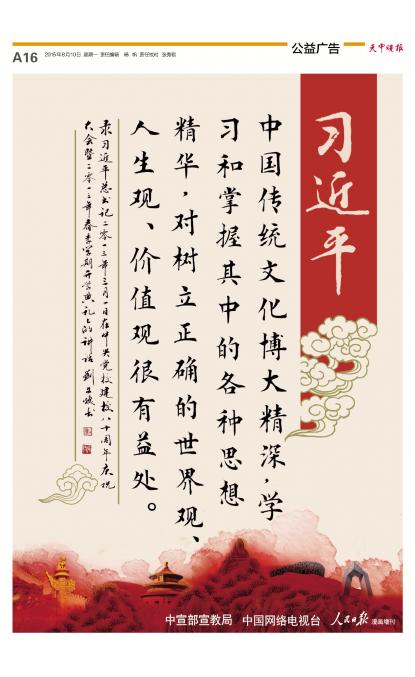 A16
2015年8月10日 星期一 责任编辑 杨 帆 责任校对 张秀丽
公益广告
天中晚报
习近平
中国传统文化博大精深,学
习和掌握其中的各种思想
精华,对树立正确的世界观、
人生观、价值观很有益处。
录习近平总书记二零一三年三月一日在中央党校建校八十周年庆祝
大会暨二零一三年春季学期开学典礼上的讲话
中宣部宣教局 中国网络电视台 人民日报 漫画增刊